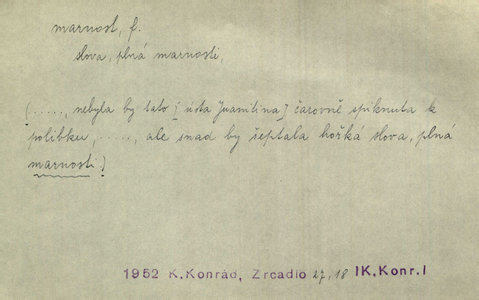 marnost, f.
slova, plná marnosti,
(....., nebyla by tato [ústa Juanitina] čarovně špiknuta k
polibku, ....., ale snad by šeptala hořká slova, plná
marnosti)
1952 K.Konrád, Zrcadlo 27,18 IK,Konr.I